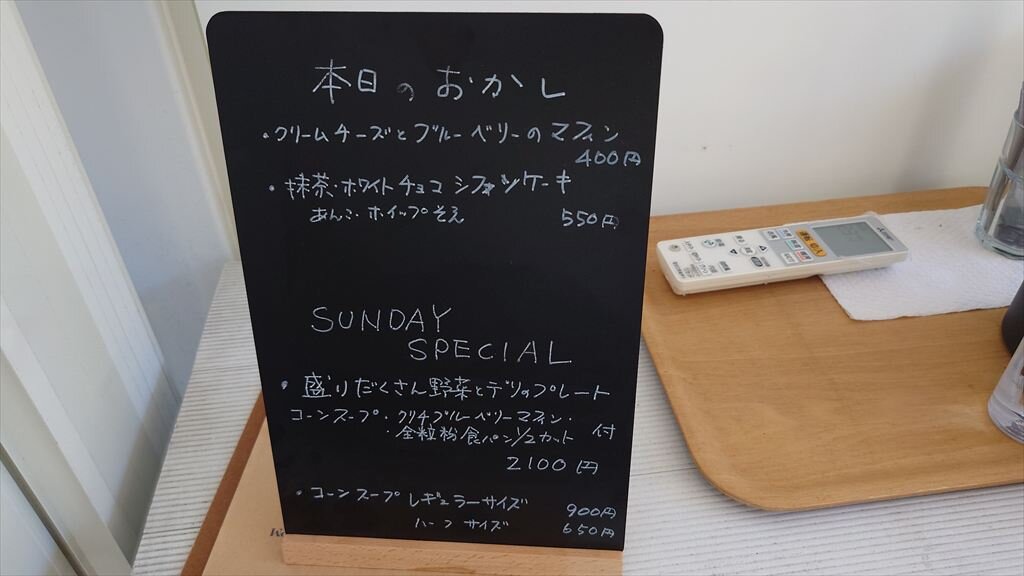 本日のおかし
・クリームチーズとブルーベリーのマフィン
400円
・抹茶・ホワイトチョコシフォンケーキ
あんこ・ホイップそえ 550円
SUNDAY
SPECIAL
・盛りだくさん野菜とデリのプレート
コーンスープ・クリチブルーベリーマフィン・
・全粒粉食パン1/2カット 付
2100円
・コーンスープ レギュラーサイズ 900円
ハーフサイズ 650円